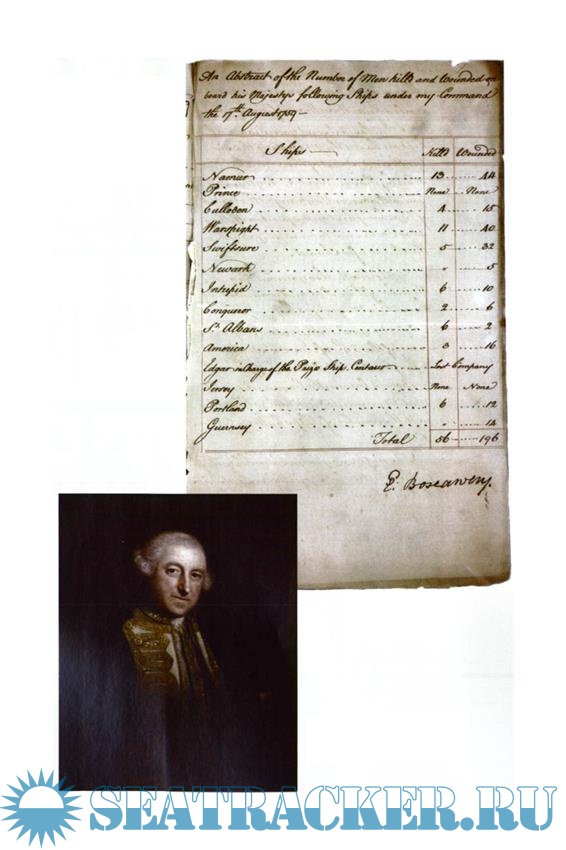 An Abstract of the Number of Men kill'd and Wounded on
board his Majestys following Ships under my Command
the 17th. August 1759 —
Ships Kill'd Wounded
Namur 13 44
Prince None None
Culloden 4 15
Warspight 11 40
Swiftsure 5 32
Newark " 5
Intrepid 6 10
Conqueror 2 6
St. Albans 6 2
America 3 16
Edgar in Charge of the Prize Ship Centaur Lost Company
Jersey None None
Portland 6 12
Guernsey " 14
Total 56 196
E: Boscawen.
SEATRACKER.RU